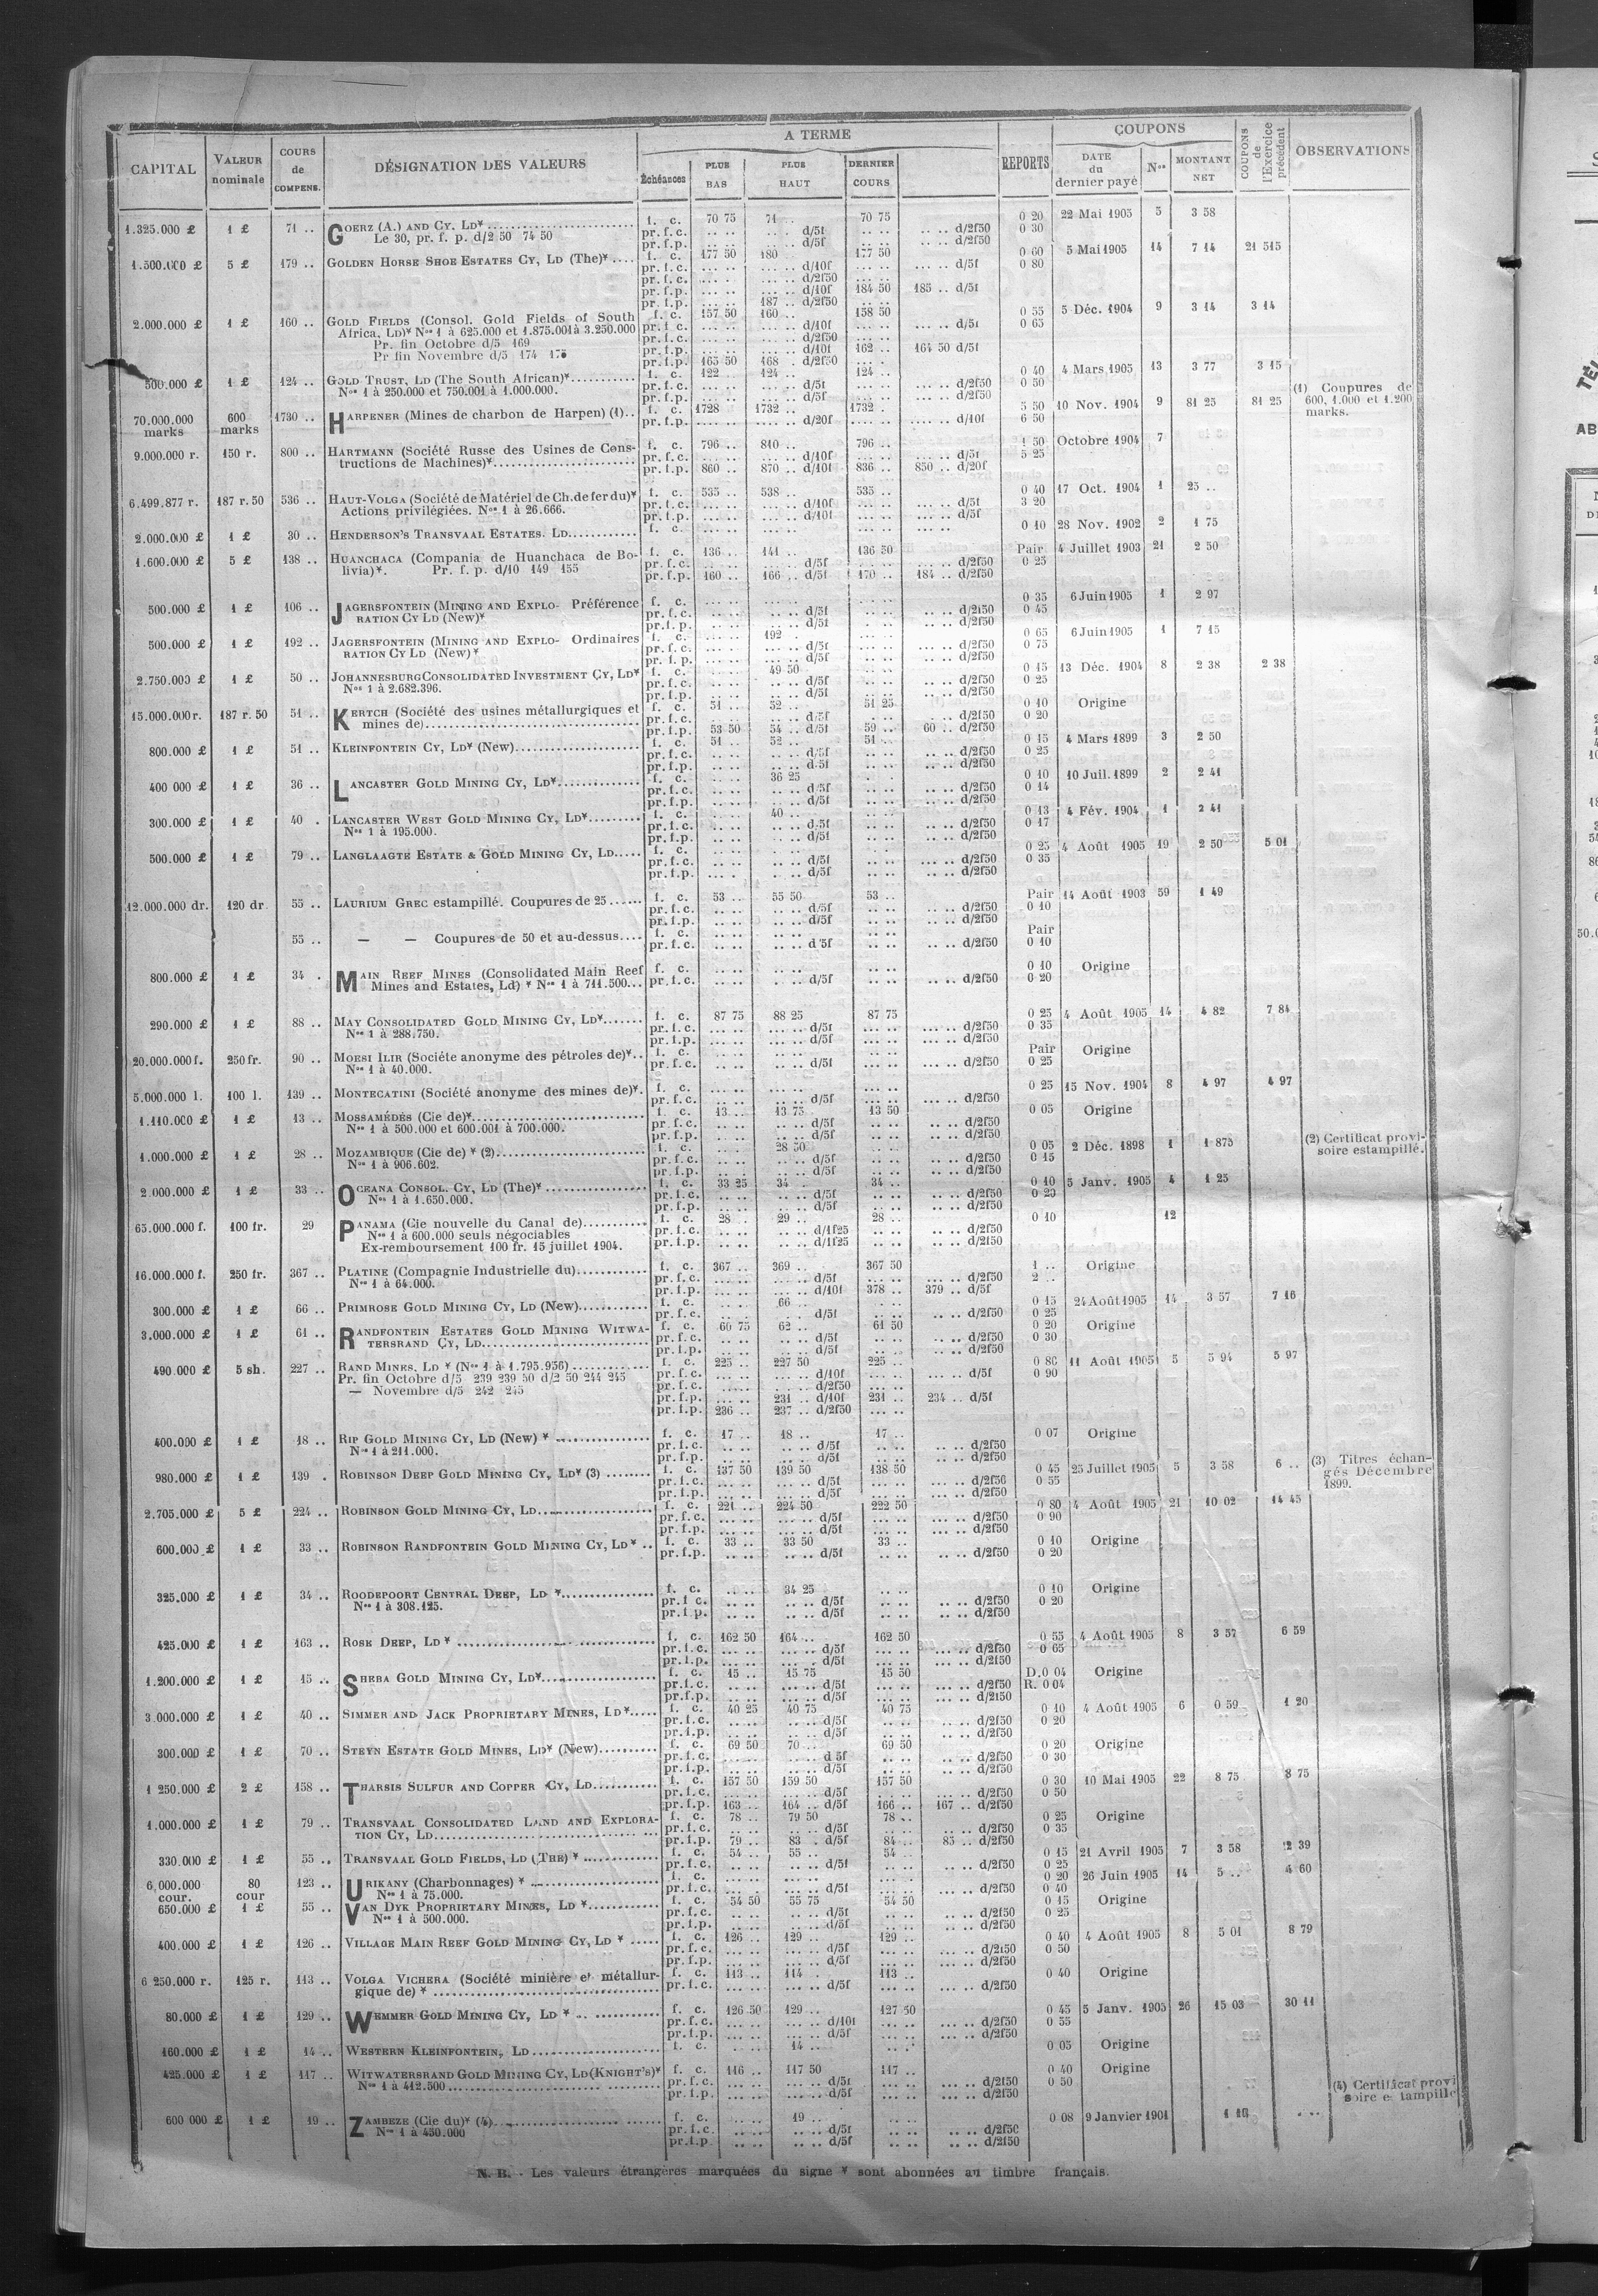 A TERME
COUPONS
CAPITAL VALEUR nominale COURS de COMPENS. DÉSIGNATION DES VALEURS Échéances PLUS BAS PLUS HAUT DERNIER COURS REPORTS DATE du dernier payé Nos MONTANT NET COUPONS de l'Exercice précédent OBSERVATIONS
1.325.000 £ 1 £ 71 .. GOERZ (A.) AND CY, LD* f. c. 70 75 71 .. 70 75 0 20 22 Mai 1905 5 3 58
Le 30, pr. f. p. d/2 50 74 50 pr.f.c. .. .. .. .. d/5f .. .. .. .. d/2f50 0 30
pr.f.p. .. .. .. .. d/5f .. .. .. .. d/2f50
1.500.000 £ 5 £ 179 .. GOLDEN HORSE SHOE ESTATES CY, LD (The)* f. c. 177 50 180 .. 177 50 0 60 5 Mai 1905 14 7 14 21 515
pr.f.c. ... .. ... .. d/10f ... .. ... .. d/5f 0 80
pr.f.c. ... .. ... .. d/2f50 ... ..
pr.f.p. ... .. ... .. d/10f 184 50 185 .. d/5f
pr.f.p. ... .. 187 .. d/2f50
2.000.000 £ 1 £ 160 .. GOLD FIELDS (Consol. Gold Fields of South f. c. 157 50 160 .. 158 50 0 55 5 Déc. 1904 9 3 14 3 14
Africa, LD)* Nos 1 à 625.000 et 1.875.001 à 3.250.000 pr.f.c. ... .. ... .. d/10f ... .. ... .. d/5f 0 65
Pr. fin Octobre d/5 169 pr.f.c. ... .. ... .. d/2f50
Pr fin Novembre d/5 174 pr.f.p. ... .. ... .. d/10f 162 .. 164 50 d/5f
pr.f.p. 165 50 168 .. d/2f50
500.000 £ 1 £ 124 .. GOLD TRUST, LD (The South African)* f. c. 122 .. 124 .. 124 .. 0 40 4 Mars 1905 13 3 77 3 15
Nos 1 à 250.000 et 750.001 à 1.000.000. pr.f.c. ... .. ... .. d/5f ... .. ... .. d/2f50 0 50 (1) Coupures de
pr.f.p. ... .. ... .. d/5f ... .. ... .. d/2f50 600, 1.000 et 1.200
70.000.000 marks 600 marks 1730 .. HARPENER (Mines de charbon de Harpen) (1).. f. c. 1728 .. 1732 .. 1732 . 5 50 10 Nov. 1904 9 81 25 81 25 marks.
pr.f.p. .... .. .... .. d/20f .... .. .... .. d/10f 6 50
9.000.000 r. 150 r. 800 .. HARTMANN (Société Russe des Usines de Cons- f. c. 796 .. 810 .. 796 .. 1 50 Octobre 1904 7
tructions de Machines)* pr.f.c. ... .. ... .. d/10f ... .. ... .. d/5f 5 25
pr.f.p. 860 .. 870 .. d/10f 836 .. 850 .. d/20f
6.499.877 r. 187 r. 50 536 .. HAUT-VOLGA (Société de Matériel de Ch. de fer du)* f. c. 535 .. 538 .. 535 .. 0 40 17 Oct. 1904 1 25 ..
Actions privilégiées. Nos 1 à 26.666. pr.f.c. ... .. ... .. d/10f ... .. ... .. d/5f 3 20
pr.f.p. ... .. ... .. d/10f ... .. ... .. d/5f
2.000.000 £ 1 £ 30 .. HENDERSON'S TRANSVAAL ESTATES. LD f. c. ... .. ... .. ... .. ... .. 0 10 28 Nov. 1902 2 1 75
1.600.000 £ 5 £ 138 .. HUANCHACA (Compania de Huanchaca de Bo- f. c. 136 .. 141 .. 136 50 Pair 4 Juillet 1903 21 2 50
livia)*. Pr. f. p. d/10 149 155 pr.f.c. ... .. ... .. d/5f ... .. ... .. d/2f50 0 25
pr.f.p. 160 .. 166 .. d/5f 170 .. 184 .. d/2f50
500.000 £ 1 £ 106 .. JAGERSFONTEIN (MINING AND EXPLO- Préférence f. c. ... .. ... .. ... .. 0 35 6 Juin 1905 1 2 97
RATION CY LD (New)* pr.f.c. ... .. ... .. d/5f ... .. ... .. d/2f50 0 45
pr.f.p. ... .. ... .. d/5f ... .. ... .. d/2f50
500.000 £ 1 £ 192 .. JAGERSFONTEIN (MINING AND EXPLO- Ordinaires f. c. ... .. 192 .. ... .. 0 65 6 Juin 1905 1 7 15
RATION CY LD (New)* pr.f.c. ... .. ... .. d/5f ... .. ... .. d/2f50 0 75
pr.f.p. ... .. ... .. d/5f ... .. ... .. d/2f50
2.750.000 £ 1 £ 50 .. JOHANNESBURG CONSOLIDATED INVESTMENT CY, LD* f. c. .. .. 49 50 .. .. 0 15 13 Déc. 1904 8 2 38 2 38
Nos 1 à 2.682.396. pr.f.c. .. .. .. .. d/5f .. .. .. .. d/2f50 0 25
pr.f.p. .. .. .. .. d/5f .. .. .. .. d/2f50
15.000.000 r. 187 r. 50 51 .. KERTCH (Société des usines métallurgiques et f. c. 51 .. 52 .. 51 25 0 10 Origine
mines de) pr.f.c. .. .. .. .. d/5f .. .. .. .. d/2f50 0 20
pr.f.p. 53 50 54 .. d/5f 59 .. 60 .. d/2f50
800.000 £ 1 £ 51 .. KLEINFONTEIN CY, LD* (New) f. c. 51 .. 52 .. 51 .. 0 15 4 Mars 1899 3 2 50
pr.f.c. .. .. .. .. d/5f .. .. .. .. d/2f50 0 25
pr.f.p. .. .. .. .. d/5f .. .. .. .. d/2f50
400 000 £ 1 £ 36 .. LANCASTER GOLD MINING CY, LD* f. c. .. .. 36 25 .. .. 0 10 10 Juil. 1899 2 2 41
pr.f.c. .. .. .. .. d/5f .. .. .. .. d/2f50 0 14
pr.f.p. .. .. .. .. d/5f .. .. .. .. d/2f50
300.000 £ 1 £ 40 . LANCASTER WEST GOLD MINING CY, LD* f. c. .. .. 40 .. .. .. 0 13 4 Fév. 1904 1 2 41
Nos 1 à 195.000. pr.f.c. .. .. .. .. d/5f .. .. .. .. d/2f50 0 17
pr.f.p. .. .. .. .. d/5f .. .. .. .. d/2f50
500.000 £ 1 £ 79 .. LANGLAAGTE ESTATE & GOLD MINING CY, LD f. c. .. .. .. .. .. .. 0 25 4 Août 1905 19 2 50 5 01
pr.f.c. .. .. .. .. d/5f .. .. .. .. d/2f50 0 35
pr.f.p. .. .. .. .. d/5f .. .. .. .. d/2f50
12.000.000 dr. 120 dr. 55 .. LAURIUM GREC estampillé. Coupures de 25 f. c. 53 .. 55 50 53 .. Pair 14 Août 1903 59 1 49
pr.f.c. .. .. .. .. d/5f .. .. .. .. d/2f50 0 10
pr.f.p. .. .. .. .. d/5f .. .. .. .. d/2f50
55 .. — — Coupures de 50 et au-dessus f. c. .. .. .. .. .. .. Pair
pr.f.c. .. .. .. .. d 5f .. .. .. .. d/2f50 0 10
800.000 £ 1 £ 34 . MAIN REEF MINES (Consolidated Main Reef f. c. .. .. .. .. .. .. 0 10 Origine
Mines and Estates, Ld) * Nos 1 à 711.500 pr.f.c. .. .. .. .. d/5f .. .. .. .. d/2f50 0 20
290.000 £ 1 £ 88 .. MAY CONSOLIDATED GOLD MINING CY, LD* f. c. 87 75 88 25 87 75 0 25 4 Août 1905 14 4 82 7 84
Nos 1 à 288.750. pr.f.c. ... .. ... .. d/5f ... .. ... .. d/2f50 0 35
pr.f.p. ... .. ... .. d/5f ... .. ... .. d/2f50
20.000.000 f. 250 fr. 90 .. MOESI ILIR (Sociéte anonyme des pétroles de)* f. c. .. .. .. .. .. .. Pair Origine
Nos 1 à 40.000. pr.f.c. ... .. ... .. d/5f ... .. ... .. d/2f50 0 25
5.000.000 l. 100 l. 139 .. MONTECATINI (Société anonyme des mines de)*. f. c. ... .. ... .. ... .. 0 25 15 Nov. 1904 8 4 97 4 97
pr.f.c. ... .. ... .. d/5f ... .. ... .. d/2f50
1.110.000 £ 1 £ 13 .. MOSSAMÉDÈS (Cie de)* f. c. 13 .. 13 75 13 50 0 05 Origine
Nos 1 à 500.000 et 600.001 à 700.000. pr.f.c. .. .. .. .. d/5f .. .. .. .. d/2f50
pr.f.p. .. .. .. .. d/5f .. .. .. .. d/2f50
1.000.000 £ 1 £ 28 .. MOZAMBIQUE (Cie de) * (2) f. c. .. .. 28 50 .. .. 0 05 2 Déc. 1898 1 1 875 (2) Certificat provi-
Nos 1 à 906.602. pr.f.c. .. .. .. .. d/5f .. .. .. .. d/2f50 0 15 soire estampillé.
pr.f.p. .. .. .. .. d/5f .. .. .. .. d/2f50
2.000.000 £ 1 £ 33 .. OCEANA CONSOL. CY, LD (The)* f. c. 33 25 34 .. 34 .. 0 10 5 Janv. 1905 4 1 25
Nos 1 à 1.650.000. pr.f.c. .. .. .. .. d/5f .. .. .. .. d/2f50 0 20
pr.f.p. .. .. .. .. d/5f .. .. .. .. d/2f50
65.000.000 f. 100 fr. 29 PANAMA (Cie nouvelle du Canal de) f. c. 28 .. 29 .. 28 .. 0 10 12
Nos 1 à 600.000 seuls négociables pr.f.c. .. .. .. .. d/1f25 .. .. .. .. d/2f50
Ex-remboursement 100 fr. 15 juillet 1904. pr.f.p. .. .. .. .. d/1f25 .. .. .. .. d/2f50
16.000.000 f. 250 fr. 367 .. PLATINE (Compagnie Industrielle du) f. c. 367 .. 369 .. 367 50 1 .. Origine
Nos 1 à 64.000. pr.f.c. ... .. ... .. d/5f ... .. ... .. d/2f50 2 ..
pr.f.p. ... .. ... .. d/10f 378 .. 379 .. d/5f
300.000 £ 1 £ 66 .. PRIMROSE GOLD MINING CY, LD (New) f. c. .. .. 66 .. .. .. 0 15 24 Août 1905 14 3 57 7 16
pr.f.c. .. .. .. .. d/5f .. .. ... .. d/2f50 0 25
3.000.000 £ 1 £ 61 .. RANDFONTEIN ESTATES GOLD MINING WITWA- f. c. 60 75 62 .. 61 50 0 20 Origine
TERSRAND CY, LD pr.f.c. .. .. .. .. d/5f .. .. .. .. d/2f50 0 30
pr.f.p. .. .. .. .. d/5f .. .. .. .. d/2f50
490.000 £ 5 sh. 227 .. RAND MINES, LD * (Nos 1 à 1.795.956) f. c. 225 .. 227 50 225 .. 0 80 11 Août 1905 5 5 94 5 97
Pr. fin Octobre d/5 239 239 50 d/2 50 244 245 pr.f.c. ... .. ... .. d/10f ... .. ... .. d/5f 0 90
— Novembre d/5 242 245 pr.f.c. ... .. ... .. d/2f50 ... ..
pr.f.p. ... .. 231 .. d/10f 231 .. 234 .. d/5f
pr.f.p. 236 .. 237 .. d/2f50 ... ..
400.000 £ 1 £ 18 .. RIP GOLD MINING CY, LD (New) * f. c. 17 .. 18 .. 17 .. 0 07 Origine
Nos 1 à 211.000. pr.f.c. .. .. .. .. d/5f .. .. .. .. d/2f50
pr.f.p. .. .. .. .. d/5f .. .. .. .. d/2f50
980.000 £ 1 £ 139 . ROBINSON DEEP GOLD MINING CY, LD* (3) f. c. 137 50 139 50 138 50 0 45 25 Juillet 1905 5 3 58 6 .. (3) Titres échan-
pr.f.c. ... .. ... .. d/5f ... .. ... .. d/2f50 0 55 gés Décembre
pr.f.p. ... .. ... .. d/5f ... .. ... .. d/2f50 1899.
2.705.000 £ 5 £ 224 .. ROBINSON GOLD MINING CY, LD f. c. 221 .. 224 50 222 50 0 80 4 Août 1905 21 10 02 14 45
pr.f.c. ... .. ... .. d/5f ... .. ... .. d/2f50 0 90
pr.f.p. ... .. ... .. d/5f ... .. ... .. d/2f50
600.000 £ 1 £ 33 .. ROBINSON RANDFONTEIN GOLD MINING CY, LD* f. c. 33 .. 33 50 33 .. 0 10 Origine
pr.f.p. .. .. .. .. d/5f .. .. .. .. d/2f50 0 20
325.000 £ 1 £ 34 .. ROODEPOORT CENTRAL DEEP, LD * f. c. .. .. 34 25 .. .. 0 10 Origine
Nos 1 à 308.125. pr.f.c. .. .. .. .. d/5f .. .. .. .. d/2f50 0 20
pr.f.p. .. .. .. .. d/5f .. .. .. .. d/2f50
425.000 £ 1 £ 163 .. ROSE DEEP, LD * f. c. 162 50 164 .. 162 50 0 55 4 Août 1905 8 3 57 6 59
pr.f.c. ... .. ... .. d/5f ... .. ... .. d/2f50 0 65
pr.f.p. ... .. ... .. d/5f ... .. ... .. d/2f50
1.200.000 £ 1 £ 15 .. SHEBA GOLD MINING CY, LD* f. c. 15 .. 15 75 15 50 D. 0 04 Origine
pr.f.c. .. .. .. .. d/5f .. .. .. .. d/2f50 R. 0 04
pr.f.p. .. .. .. .. d/5f .. .. .. .. d/2f50
3.000.000 £ 1 £ 40 .. SIMMER AND JACK PROPRIETARY MINES, LD* f. c. 40 25 40 75 40 75 0 10 4 Août 1905 6 0 59 1 20
pr.f.c. .. .. .. .. d/5f .. .. .. .. d/2f50 0 20
pr.f.p. .. .. .. .. d/5f .. .. .. .. d/2f50
300.000 £ 1 £ 70 .. STEYN ESTATE GOLD MINES, LD* (New) f. c. 69 50 70 .. 69 50 0 20 Origine
pr.f.c. .. .. .. .. d 5f .. .. .. .. d/2f50 0 30
pr.f.p. .. .. .. .. d/5f .. .. .. .. d/2f50
1 250.000 £ 2 £ 158 .. THARSIS SULFUR AND COPPER CY, LD f. c. 157 50 159 50 157 50 0 30 10 Mai 1905 22 8 75 8 75
pr.f.c. ... .. ... .. d/5f ... .. ... .. d/2f50 0 50
pr.f.p. 163 .. 164 .. d/5f 166 .. 167 .. d/2f50
1.000.000 £ 1 £ 79 .. TRANSVAAL CONSOLIDATED LAND AND EXPLORA- f. c. 78 .. 79 50 78 .. 0 25 Origine
TION CY, LD pr.f.c. .. .. .. .. d/5f .. .. .. .. d/2f50 0 35
pr.f.p. 79 .. 83 . d/5f 84 .. 85 .. d/2f50
330.000 £ 1 £ 55 .. TRANSVAAL GOLD FIELDS, LD (THE) * f. c. 54 .. 55 .. 54 .. 0 15 21 Avril 1905 7 3 58 2 39
pr.f.c. .. .. .. .. d/5f .. .. .. .. d/2f50 0 25
6.000.000 cour. 80 cour 123 .. URIKANY (Charbonnages) * f. c. ... .. ... .. ... .. 0 20 26 Juin 1905 14 5 .. 4 60
Nos 1 à 75.000. pr.f.c. ... .. ... .. d/5f ... .. ... .. d/2f50 0 40
650.000 £ 1 £ 55 .. VAN DYK PROPRIETARY MINES, LD * f. c. 54 50 55 75 54 50 0 15 Origine
Nos 1 à 500.000. pr.f.c. .. .. .. .. d/5f .. .. .. .. d/2f50 0 25
pr.f.p. .. .. .. .. d/5f .. .. .. .. d/2f50
400.000 £ 1 £ 126 .. VILLAGE MAIN REEF GOLD MINING CY, LD * f. c. 126 .. 129 .. 129 .. 0 40 4 Août 1905 8 5 01 8 79
pr.f.c. ... .. ... .. d/5f ... .. ... .. d/2f50 0 50
pr.f.p. ... .. ... .. d/5f ... .. ... .. d/2f50
6 250.000 r. 125 r. 113 .. VOLGA VICHERA (Société minière et métallur- f. c. 113 .. 114 .. 113 .. 0 40 Origine
gique de) * pr.f.c. ... .. ... .. d/5f ... .. ... .. d/2f50
80.000 £ 1 £ 129 .. WEMMER GOLD MINING CY, LD * f. c. 126 50 129 .. 127 50 0 45 5 Janv. 1905 26 15 03 30 11
pr.f.c. ... .. ... .. d/10f ... .. ... .. d/2f50 0 55
pr.f.p. ... .. ... .. d/5f ... .. ... .. d/2f50
160.000 £ 1 £ 14 .. WESTERN KLEINFONTEIN, LD f. c. .. .. 14 .. .. .. 0 05 Origine
425.000 £ 1 £ 117 .. WITWATERSRAND GOLD MINING CY, LD (KNIGHT'S)* f. c. 116 .. 117 50 117 .. 0 40 Origine
Nos 1 à 412.500 pr.f.c. ... .. ... .. d/5f ... .. ... .. d/2f50 0 50 (4) Certificat provi
pr.f.p. ... .. ... .. d/5f ... .. ... .. d/2f50 soire e tampillé
600 000 £ 1 £ 19 .. ZAMBEZE (Cie du)* (4) f. c. .. .. 19 .. .. .. 0 08 9 Janvier 1901
Nos 1 à 450.000 pr.f.c. .. .. .. .. d/5f .. .. .. .. d/2f50
pr.f.p. .. .. .. .. d/5f .. .. .. .. d/2f50
N. B. - Les valeurs étrangères marquées du signe * sont abonnées au timbre français.